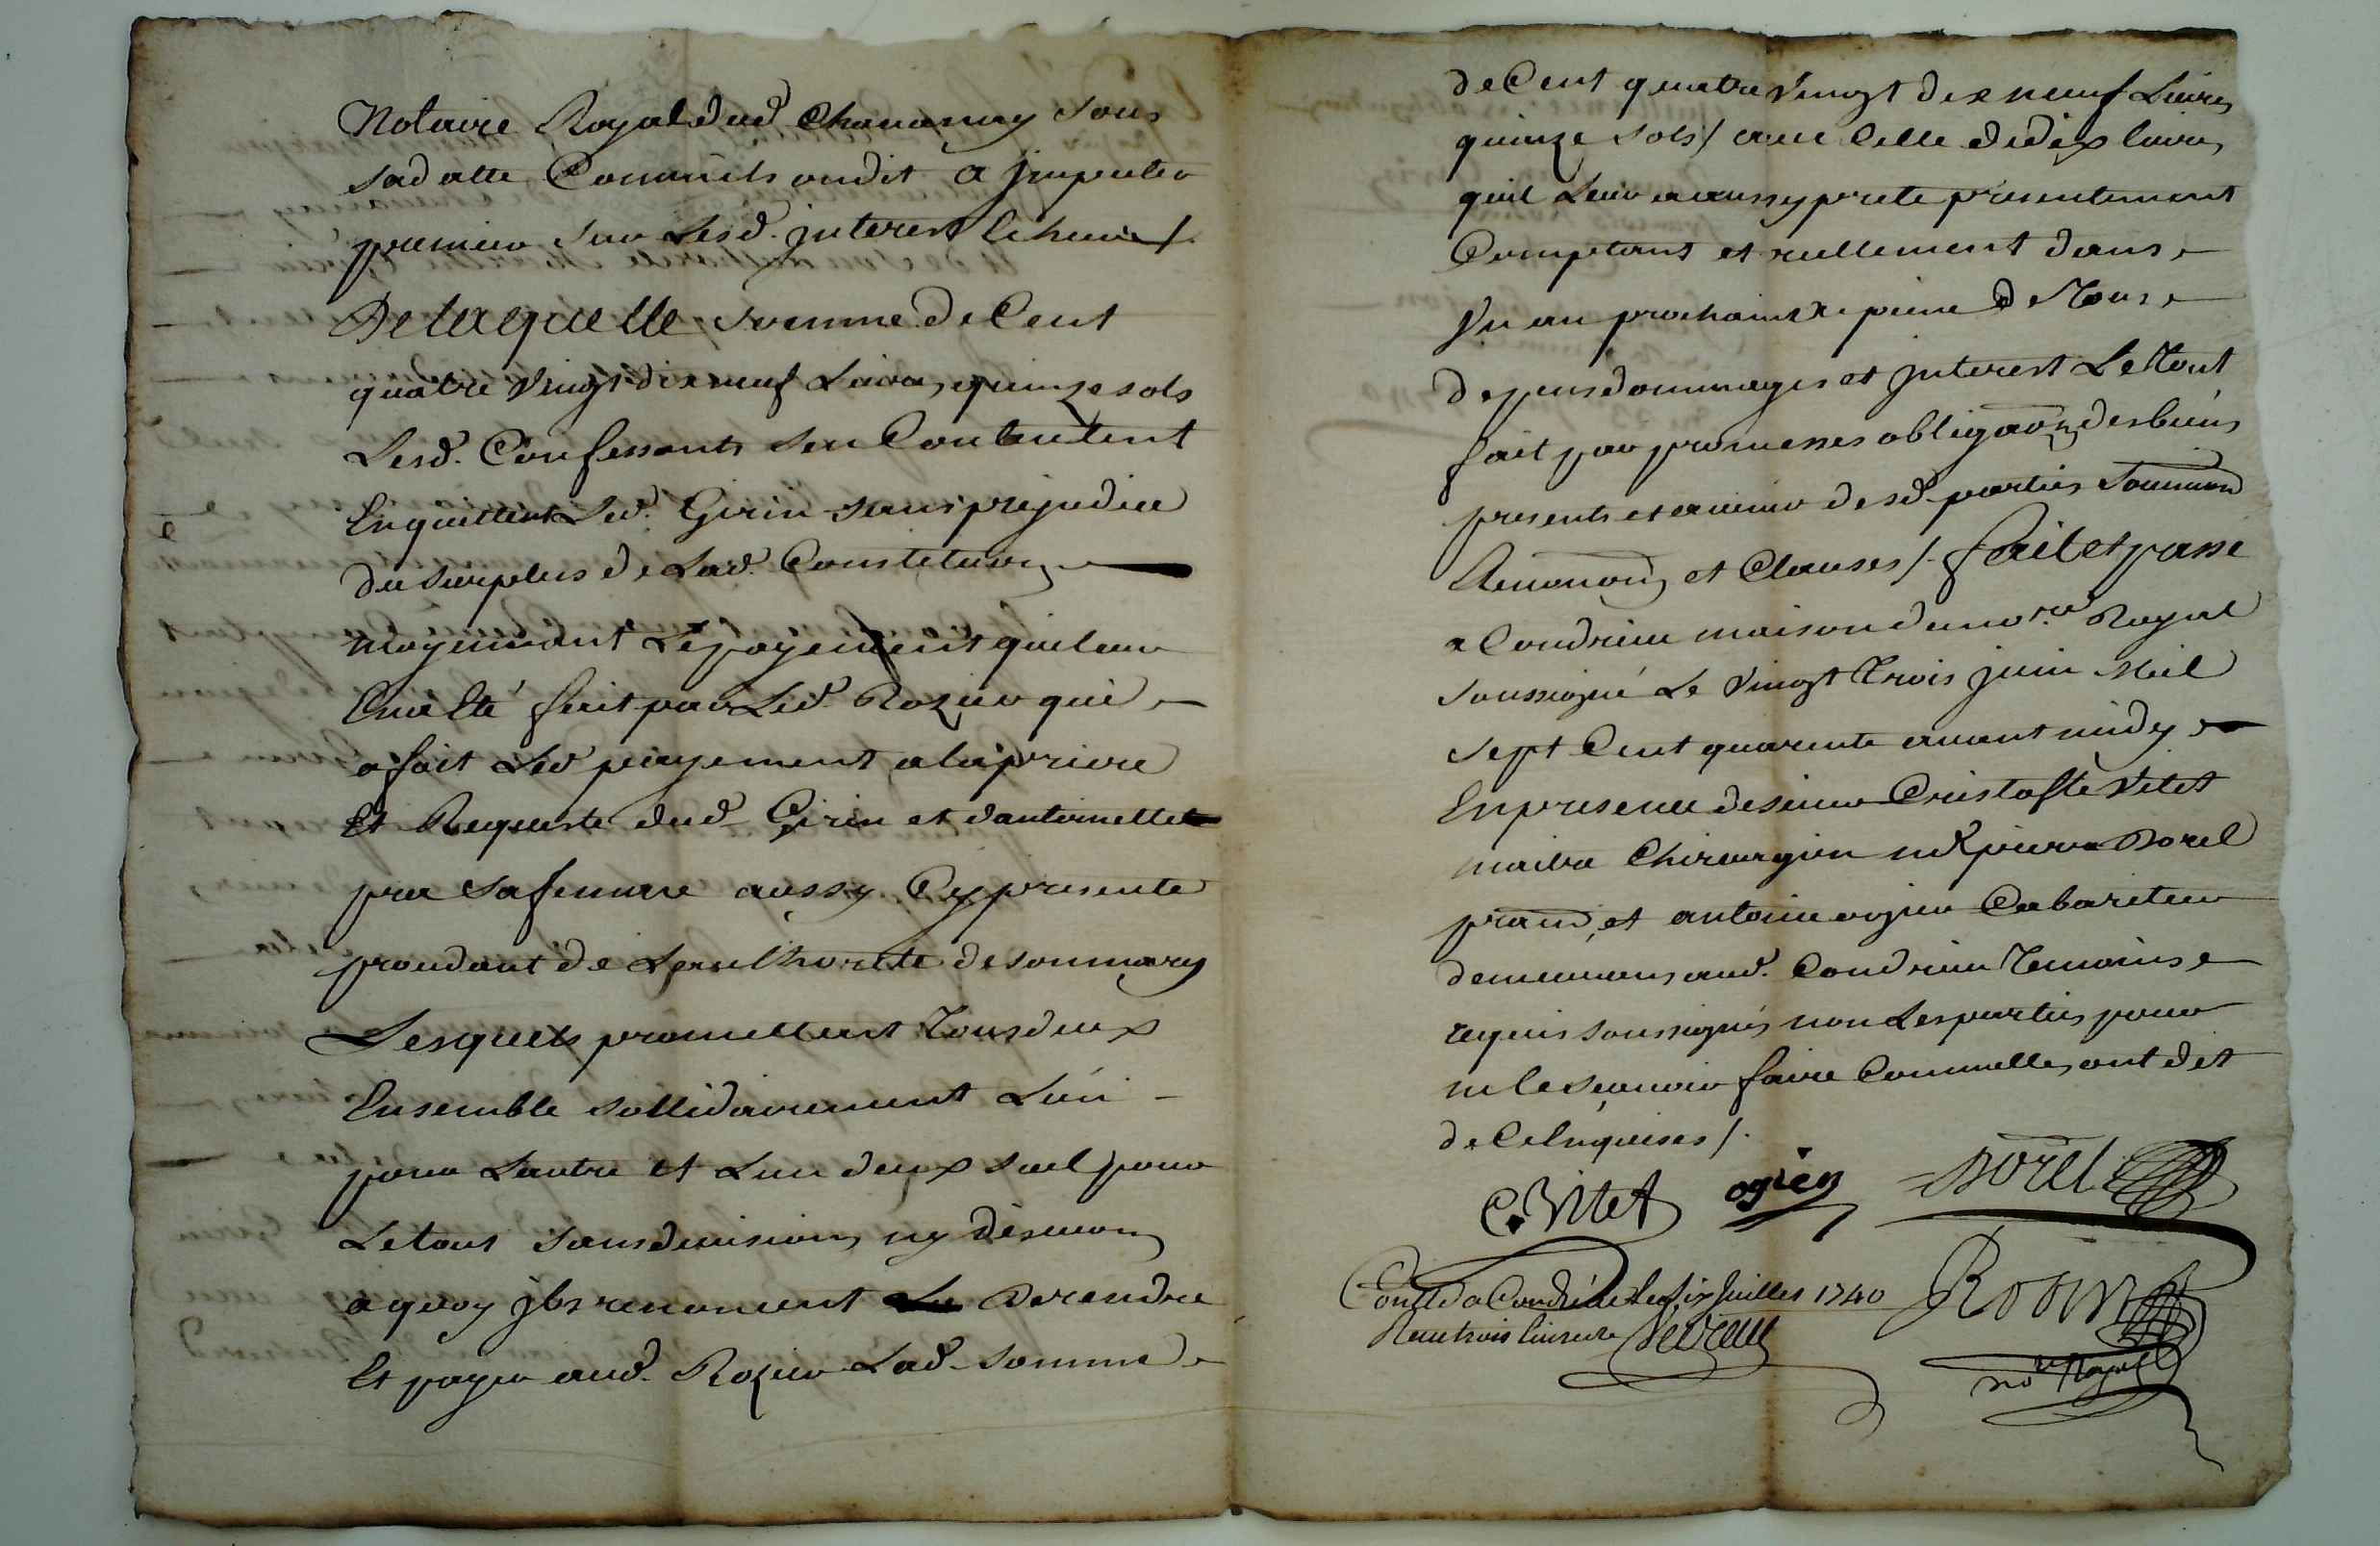 Notaire Royal dud Chauanay sous
sadatte Comme ils ondit a jmputer
premier sur Lesd. jnterest &
De laquelle somme de Cent
quatre Vingt dix neuf Liures quinze sols
Lesd. Confessants sen Contentent
Enquittent Led. Girin sans prejudice
du surplus de Lad. Constitution
moyennant Le payement quileur
En a Eté fait par Led. Rozier qui
a fait Led payement alapriere
Et Requeste dud Girin et dantoinette
pra safemme aussy Cy presente
procedant de Lauthorité desonmary
Lesquels promettent Tous deux
Ensemble sollidairement Lun
pour Lautre et Lun deux seul pour
Letout sansdiuision ny discution
a quoy jls renoncent De rendre
Et payer aud. Rozier Lad. somme
deCent quatre Vingt dix neuf Liures
quinze sols/ auec Celle dedix liures
quil Leur a aussy preté presentement
Comptant et reellement dans
Vn an prochain a peine de Tous
depens dommages et jnterest Le Tout
fait par promesses obligaon desbiens
presents et auenir desd. parties Soummons
Renonons et Clauses/. fait et passé
a Condrieu maison dunore Royal
soussigné Le Vingt Trois juin Mil
sept Cent quarante auant midy
En presence de sieur Cristofle Vitet
maitre Chirurgien md pierre Borel
prand, et antoine ogier Cabaretier
demeurans aud. Condrieu Temoins
requis soussignés non Lesparties pour
ne le sçauoir faire Commelles ont dit
de Ce Enquises/.
C. Vitet ogier Borel
Conllé a Condrieu le six Juillet 1740
Reçu trois liures
Roüin
no.re Royal